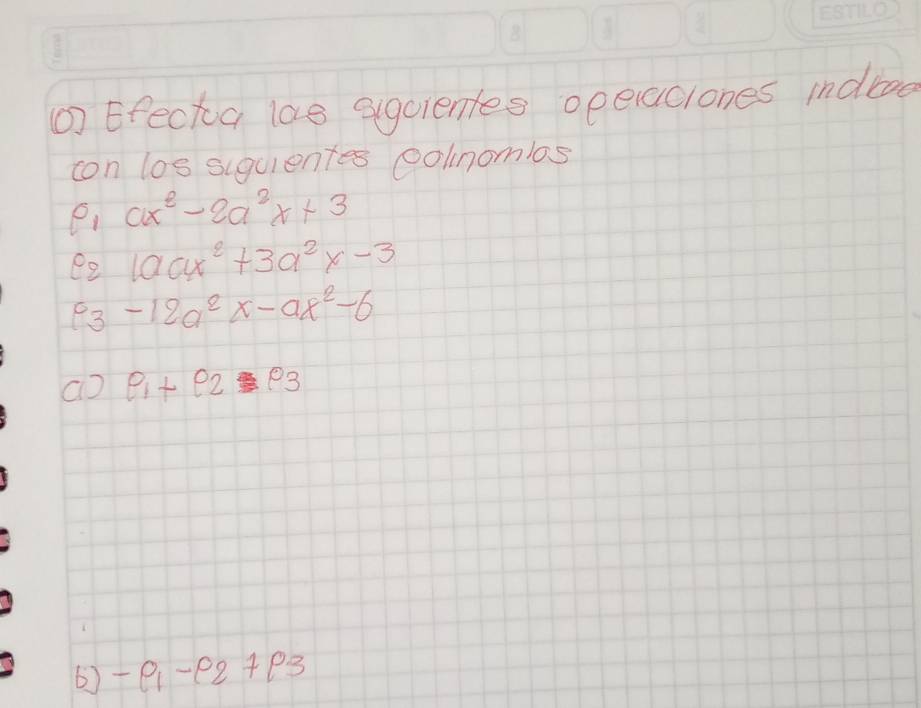 ESTILO
10) Efectua las siguientes operaciones indica
con los siguientes polinomios
P1 ax² - 2a²x + 3
P2 10ax² + 3a²x - 3
P3 - 12a²x - ax² - 6
a) P1 + P2 - P3
b) - P1 - P2 + P3